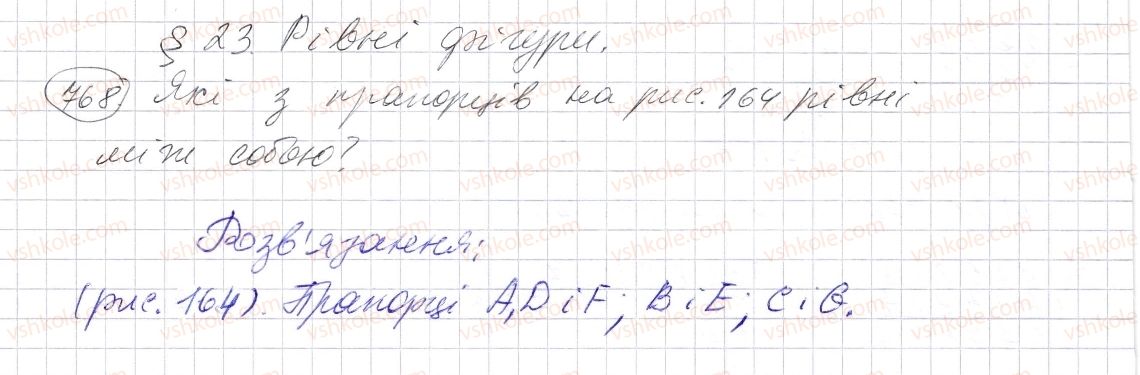 § 23. Рівні фігури.
768) Які з прапорців на рис. 164 рівні
між собою?
Розв'язання:
(рис. 164). Прапорці A, D і F; B і E; C і G.